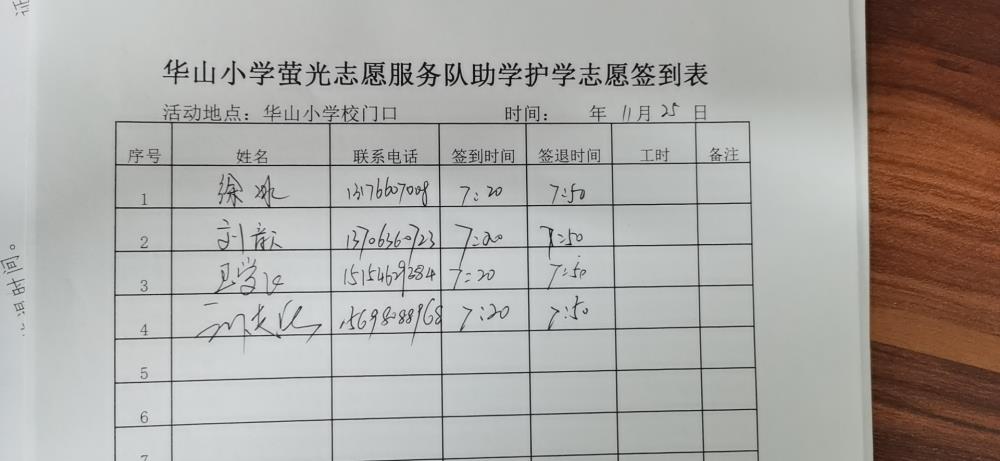 华山小学萤光志愿服务队助学护学志愿签到表
活动地点：华山小学校门口 时间： 年 11月 25 日
序号 姓名 联系电话 签到时间 签退时间 工时 备注
1 徐冰 13176607008 7:20 7:50
2 刘 13706360723 7:20 7:50
3 15154629284 7:20 7:50
4 15698088968 7:20 7:50
5
6
7
时间。
证